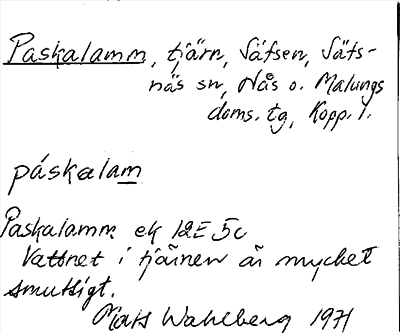 Paskalamm, tjärn, Säfsen, Säfs-
näs sn, Nås o. Malungs
doms. tg, Kopp. l.
páskalam
Paskalamm ek 12E 5c
Vattnet i tjärnen är mycket
smutsigt.
Mats Wahlberg 1971